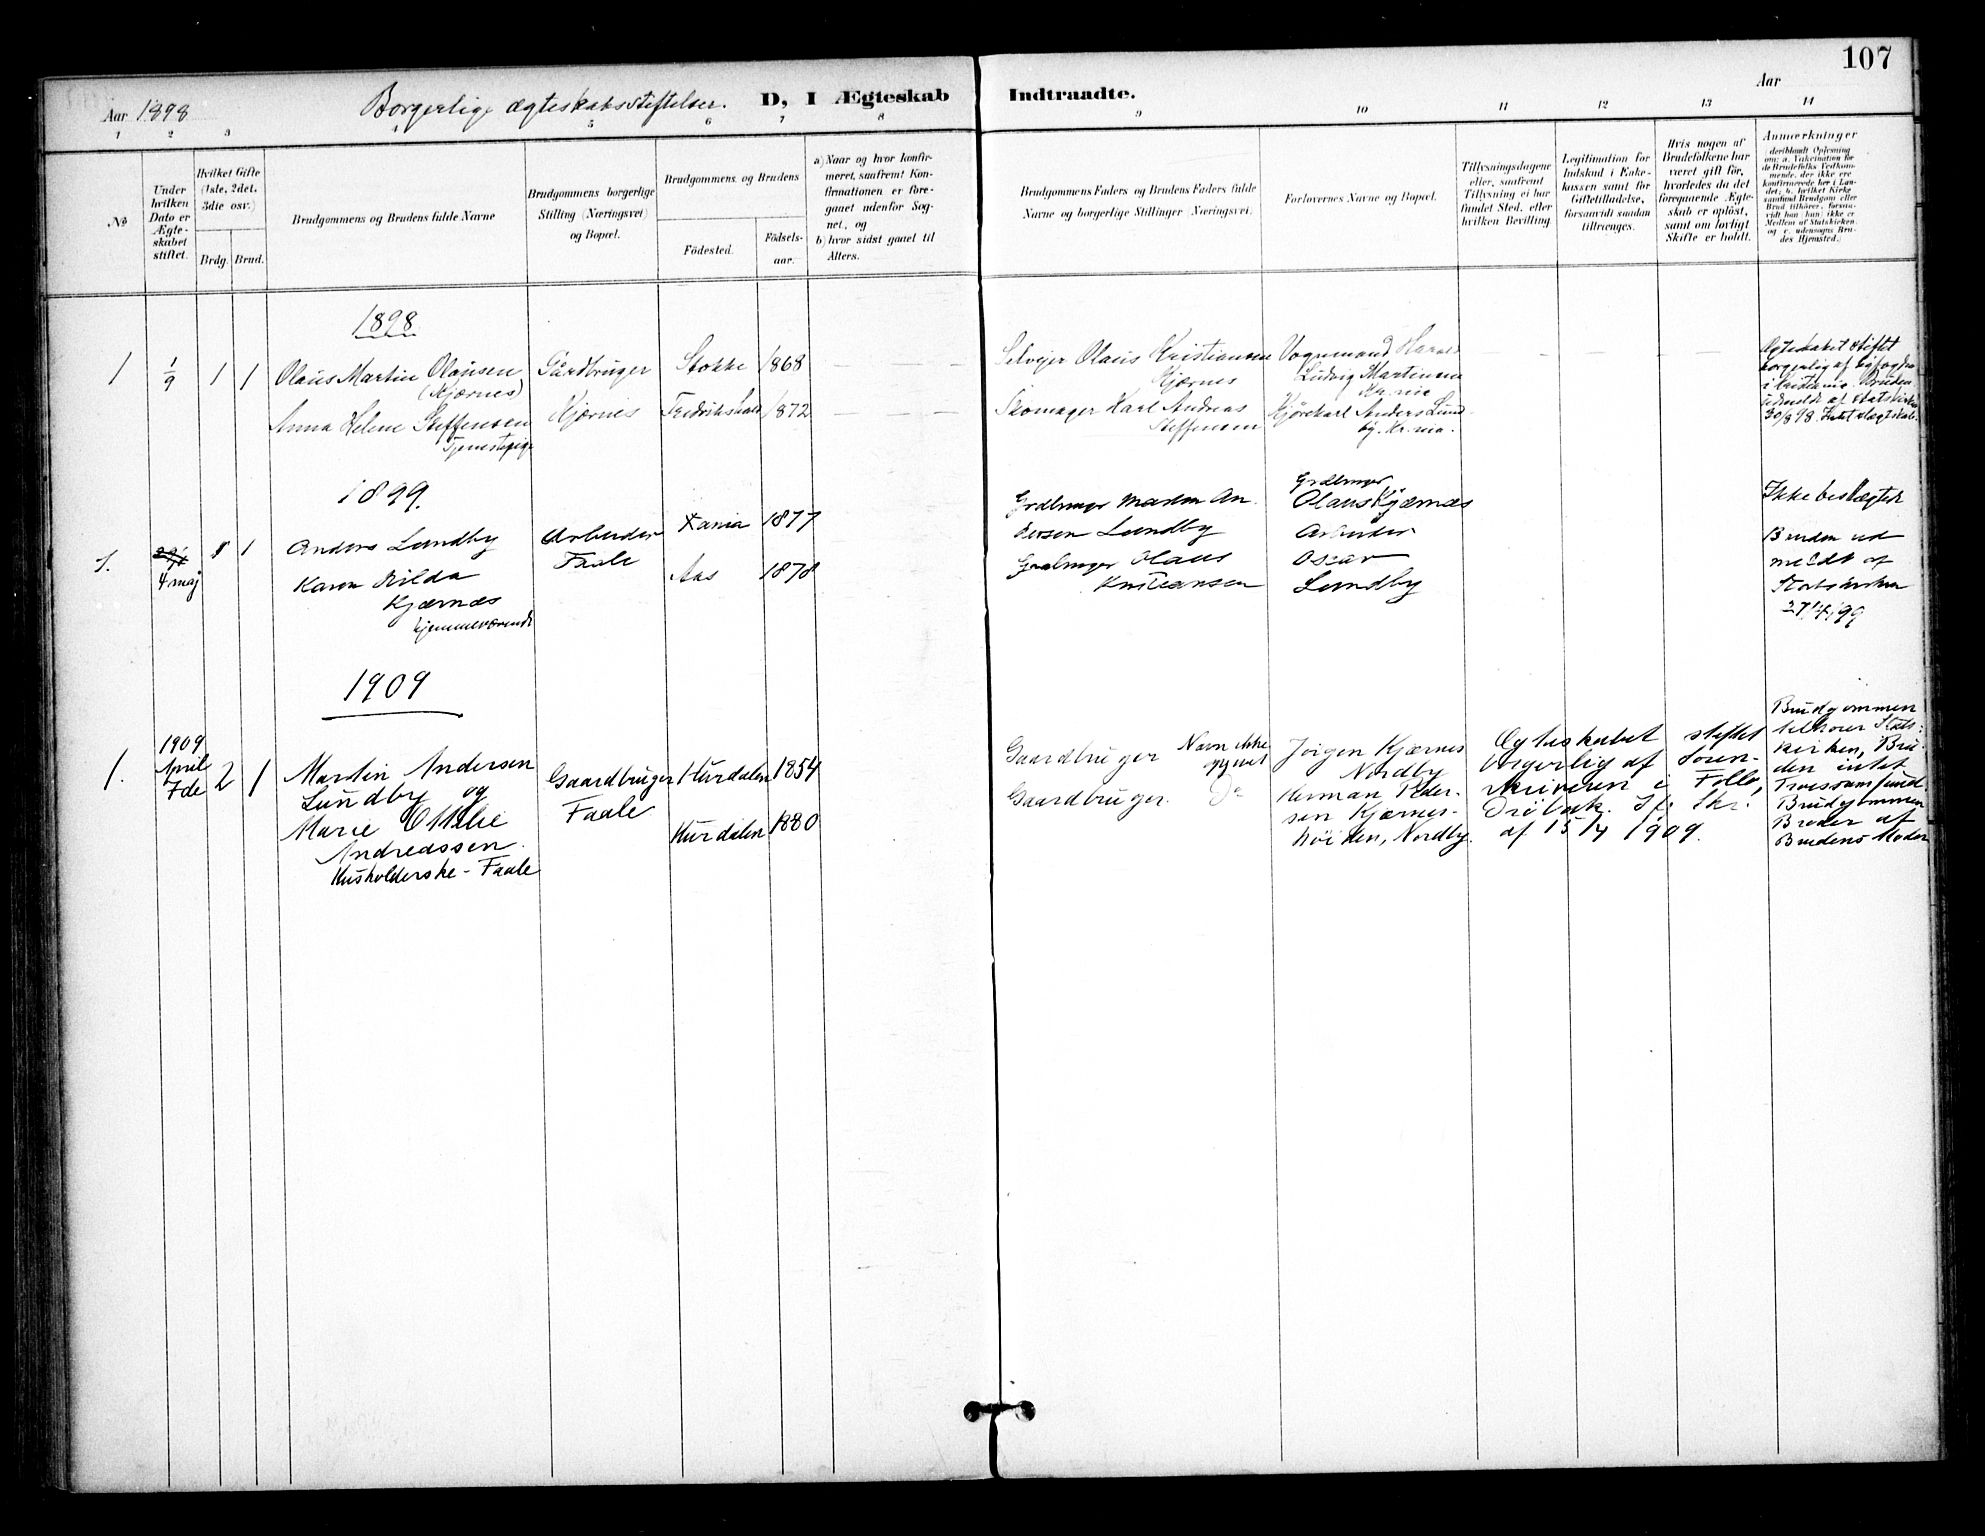 107
Aar 1898
Borgerlige ægteskabsstiftelser.
D, I Ægteskab
Indtraadte.
Aar
1 2 3 4 5 6 7 8
9 10 11 12 13 14
No
Under hvilken Dato er Ægteskabet stiftet.
Hvilket Gifte (1ste, 2det, 3die osv.)
Brdg. Brud.
Brudgommens og Brudens fulde Navne
Brudgommens borgerlige Stilling (Næringsvei) og Bopæl.
Brudgommens og Brudens
Födested.
Födselsaar.
a) Naar og hvor konfirmeret, saafremt Konfirmationen er foregaaet udenfor Sognet, og
b) hvor sidst gaaet til Alters.
Brudgommens Faders og Brudens Faders fulde Navne og borgerlige Stillinger (Næringsvei.)
Forlovernes Navne og Bopæl.
Tillysningsdagene eller, saafremt Tillysning ei har fundet Sted, efter hvilken Bevilling
Legitimation for Indskud i Enkekassen samt for Giftetilladelse, forsaavidt saadan tiltrænges.
Hvis nogen af Brudefolkene har været gift för, hvorledes da det foregaaende Ægteskab er oplöst, samt om lovligt Skifte er holdt.
Anmærkninger
1898
1 1/9 1 1 Olaus Martin Olausen
(Kjærnes)
Gårdbruger
Stokke 1868
Anna Helene Steffensen
Tjenestepige
Kjærnes
Fredrikshald 1872
Selvejer Olaus Kristiansen
Kjærnes
Skomager Karl Andreas
Steffensen
Vognmand Harald
Ludvig Martinsen
Kr.nia
Kjørekarl Anders Lundby. Kr.nia.
Ægteskabet stiftet
borgerlig af byfogden
i Kristiania. Bruden
udmeldt af statskirken
30/8 98.
1899.
1. 4 maj 1 1
Anders Lundby
Karen Hilda
Kjærnes
hjemmeværende
Arbeider
Faale
Xania 1877
Aas 1878
Grdbruger Martin Andersen Lundby
Grdbruger Olaus
Kristiansen
Grdbruger
Olaus Kjærnes
Arbeider
Oscar
Lundby
Ikke beslægtede
Bruden udmeldt af
Statskirken
27/4 99
1909
1. 1909
April
7de 2 1
Martin Andersen
Lundby og
Marie Othilie
Andreassen.
Husholderske - Faale
Gaardbruger
Faale
Hurdalen 1854
Hurdalen 1880
Gaardbruger Navn ikke
opgivet
Gaardbruger. Do
Jörgen Kjærnes
Nordby
Herman Pedersen Kjærnes-
höiden, Nordby.
Ægteskabet stiftet
borgerlig af Sorenskriveren i Follo,
Dröbak. If: Skr:
af 15/4 1909.
Brudgommen
tilhører Statskirken, Bruden intet
Troessamfund
Brudgommen
Broder af
Brudens Moder